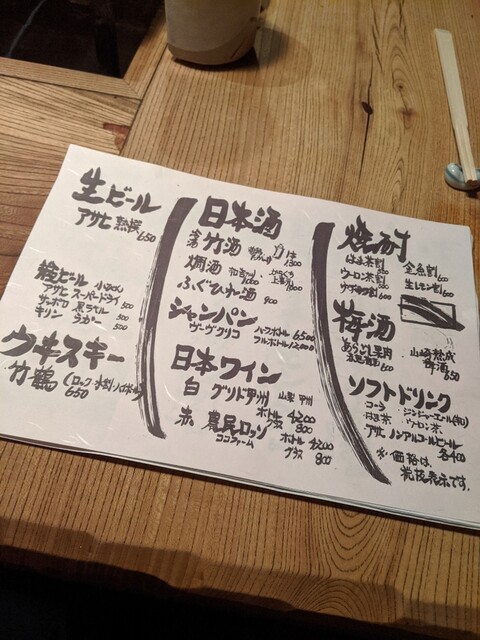 生ビール
アサヒ 熟撰
650
瓶ビール 小びん
アサヒ スーパードライ 500
サッポロ 黒ラベル 500
キリン ラガー 500
ウキスキー
竹鶴 (ロック・水割・ハイボール)
650
日本酒
竹酒
1300
燗酒
1000
ふぐひれ酒 900
シャンパン
ヴーヴクリコ ハーフボトル 6500
フルボトル 12000
日本ワイン
白 グリド甲州 山梨 甲州
ボトル 4200
グラス 800
赤 農民ロッソ
ココファーム
ボトル 4200
グラス 800
焼酎
そば茶割 金魚割 600
ウーロン茶割 生レモン割 600
梅酒
あらごし果肉
山崎熟成
梅酒
650
ソフトドリンク
コーラ ジンジャーエール(辛)
そば茶 ウーロン茶
アサヒ ノンアルコールビール
各400
※価格は
税抜表示です。